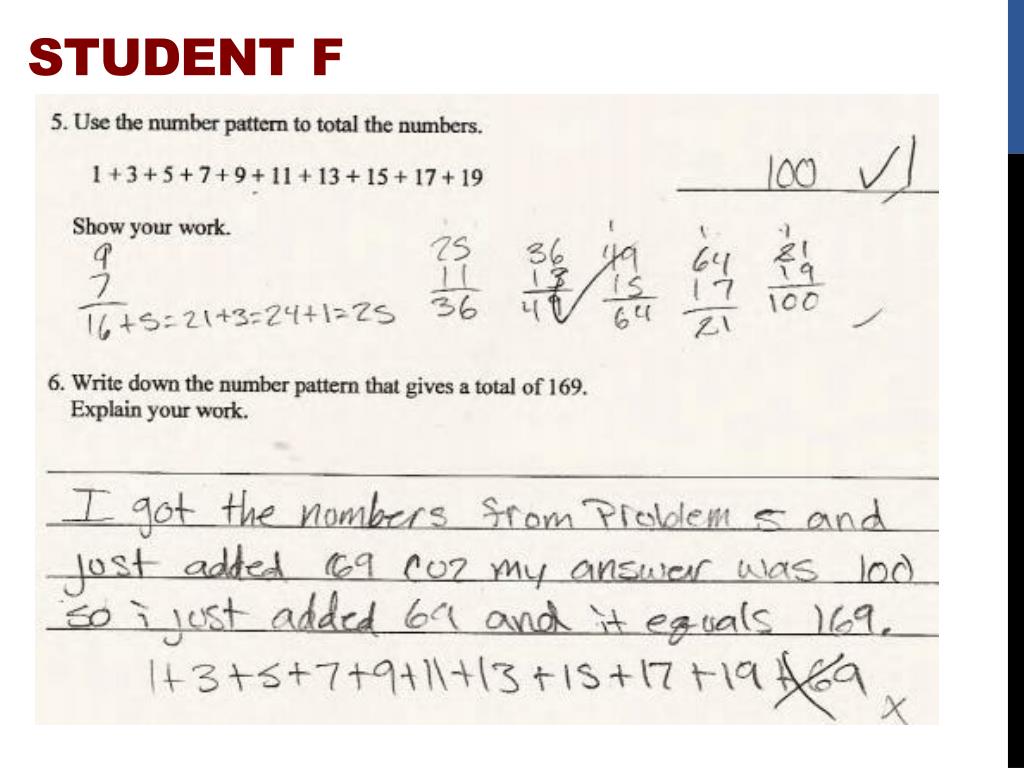 STUDENT F
5. Use the number pattern to total the numbers.
1 + 3 + 5 + 7 + 9 + 11 + 13 + 15 + 17 + 19
100 ✓ 1
Show your work.
9
7
16+5=21+3=24+1=25
25
11
36
36
13
49
1
49
15
64
1
64
17
21
1
81
19
100
6. Write down the number pattern that gives a total of 169.
Explain your work.
I got the nombers from Problem 5 and
just added 69 cuz my answer was 100
so i just added 69 and it equals 169.
1+3+5+7+9+11+13+15+17+19+69
x